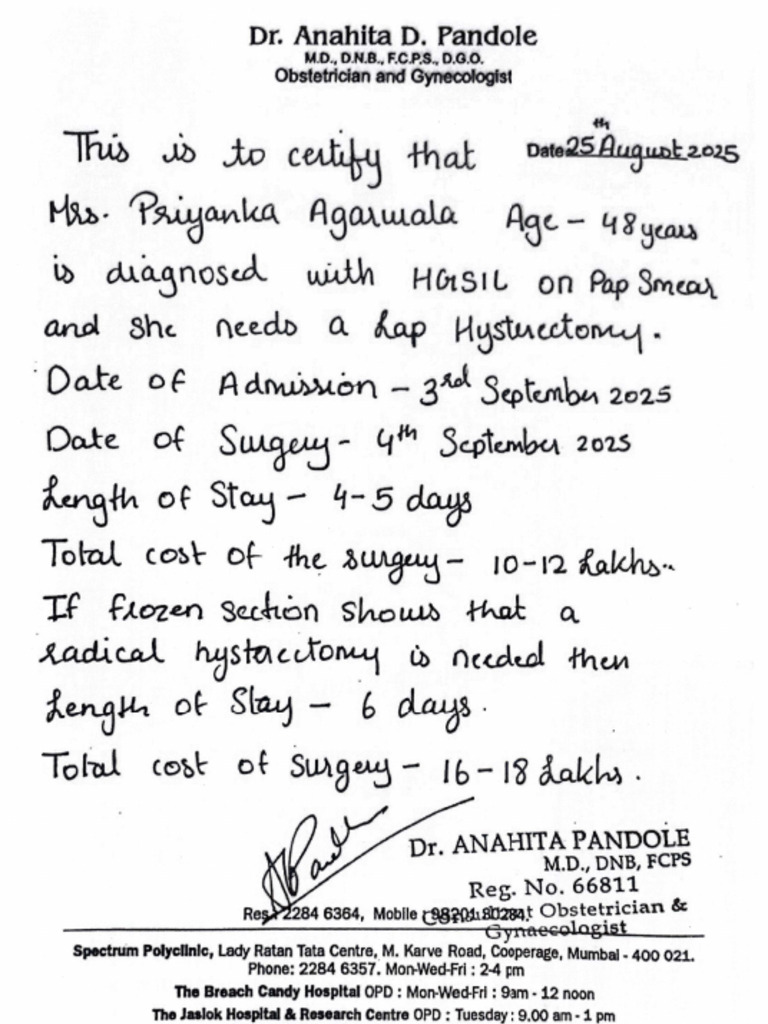 Dr. Anahita D. Pandole
M.D., D.N.B., F.C.P.S., D.G.O.
Obstetrician and Gynecologist
Date 25th August 2025
This is to certify that
Mrs. Priyanka Agarwala Age - 48 years
is diagnosed with HGSIL on Pap Smear
and she needs a Lap Hysterectomy.
Date of Admission - 3rd September 2025
Date of Surgery - 4th September 2025
Length of Stay - 4-5 days
Total cost of the surgery - 10-12 Lakhs..
If frozen section shows that a
radical hysterectomy is needed then
Length of Stay - 6 days.
Total cost of Surgery - 16-18 Lakhs.
Dr. ANAHITA PANDOLE
M.D., DNB, FCPS
Reg. No. 66811
Obstetrician &
Gynaecologist
Res.: 2284 6364, Mobile : 98201 80284.
Spectrum Polyclinic, Lady Ratan Tata Centre, M. Karve Road, Cooperage, Mumbai - 400 021.
Phone: 2284 6357. Mon-Wed-Fri : 2-4 pm
The Breach Candy Hospital OPD : Mon-Wed-Fri : 9am - 12 noon
The Jaslok Hospital & Research Centre OPD : Tuesday : 9.00 am - 1 pm